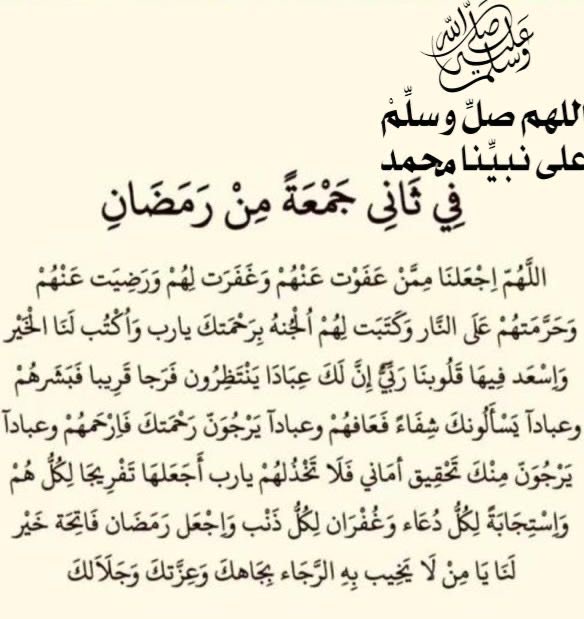 صلى الله عليه وسلم
اللهم صلِّ وسلِّمْ
على نبيِّنا محمد
فِي ثَانِى جَمْعَةً مِنْ رَمَضَانِ
اللَّهُمّ اِجْعَلنَا مِمَّنْ عَفَوْت عَنْهُمْ وَغَفَرَت لِهُمْ وَرَضِيَت عَنْهُمْ
وَحَرَّمَتهُمْ عَلَى النَّار وَكَتَبَت لِهُمْ اُلْجُنهُ بِرَحْمَتكَ يارب وَاُكْتُب لَنَا الْخَيْر
وَاِسْعَد فِيهَا قَلُوبنَا رَبَّيُّ إِنَّ لَكَ عِبَادَا يَنْتَظِرُون فَرَجا قَرِيبا فَبَشَرهُمْ
وعبادآ يَسْأَلُونكَ شِفَاءً فَعَافهُمْ وعبادآ يَرْجُونّ رَحْمَتكَ فَاِرْحَمهُمْ وعبادآ
يَرْجُونّ مِنْكَ تَحْقِيق أمَاني فَلَا تَخْذُلهُمْ يارب أَجَعَلهَا تَفْرِيجَا لِكُلُّ هُمْ
وَاِسْتِجَابَةً لِكُلُّ دُعَاء وَغُفْرَان لِكُلُّ ذَنْب وَاِجْعَل رَمَضَان فَاتِحَة خَيْر
لَنَا يَا مِنْ لَا يَخِيب بِهِ الرَّجَاء بِجَاهكَ وَعِزَّتكَ وَجَلَالكَ